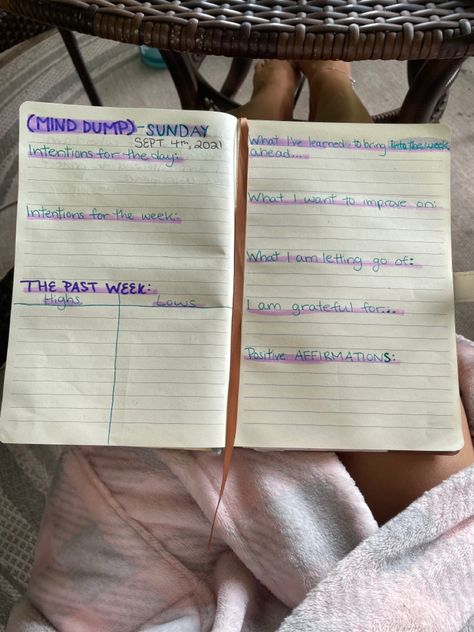 (MIND DUMP) - SUNDAY
SEPT. 4TH, 2021
Intentions for the day:
Intentions for the week:
THE PAST WEEK:
Highs
Lows
What I've learned to bring into the week
ahead...
What I want to improve on:
What I am letting go of:
I am grateful for...
Positive AFFIRMATIONS: